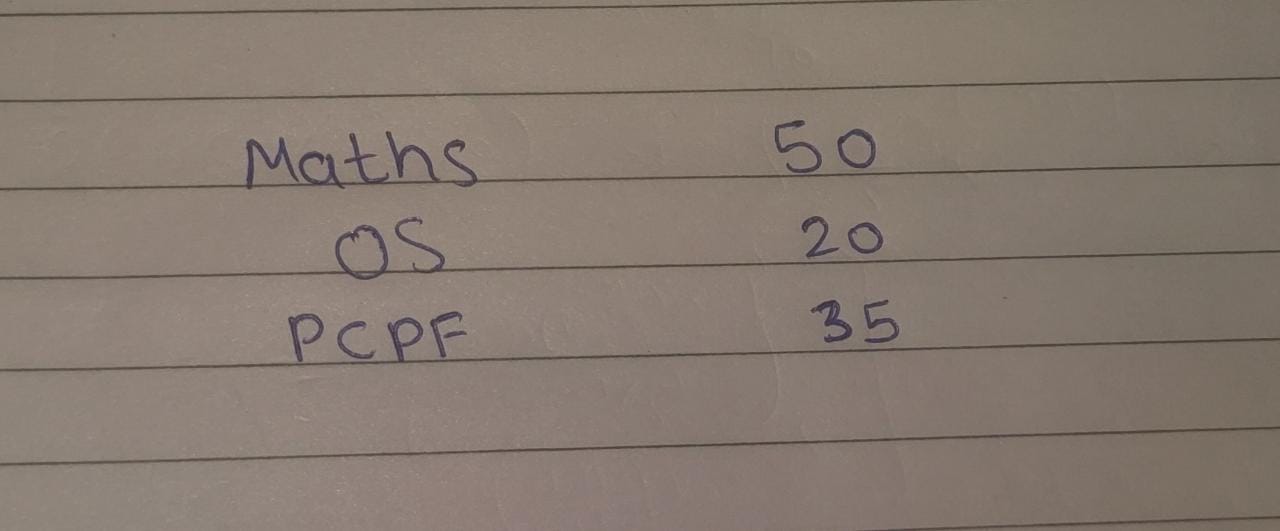 Maths 50
OS 20
PCPF 35